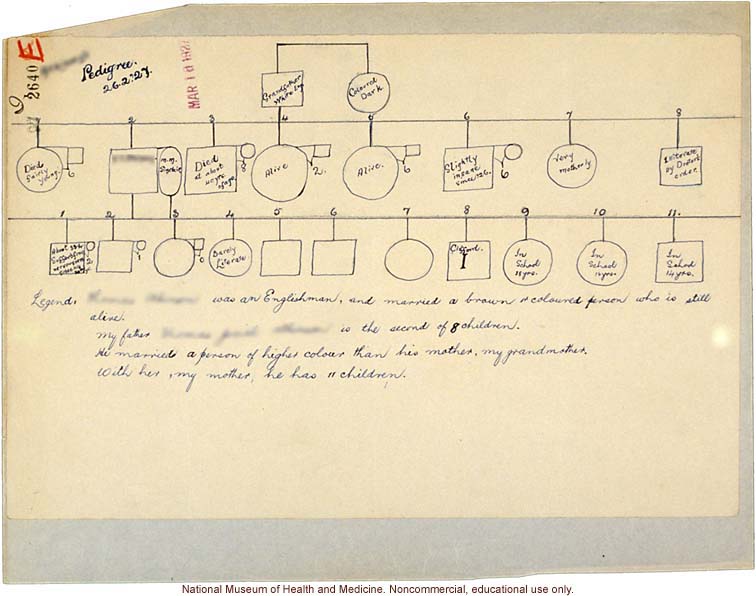 E
2640
Pedigree.
26.2.27.
MAR 10 1927
Grandfather
White Eng
Coloured
Dark
2 3 4 5 6 7 8
Died
Safely
young.
6
m.m.
Died
at about
40 yrs
of age.
8
Alive
2
Alive.
6
Slightly
insane
since '26.
6
Very
motherly
Illiterate
by
order.
1 2 3 4 5 6 7 8 9 10 11.
About 33 yr
Suffering
2
1
0
Barely
Literate
Clifford.
I
In
School
18 yrs.
In
School
In
School
14 yrs.
Legend: was an Englishman, and married a brown or coloured person who is still
alive.
My father is the second of 8 children.
He married a person of higher colour than his mother, my grandmother.
With her, my mother, he has 11 children.
National Museum of Health and Medicine. Noncommercial, educational use only.